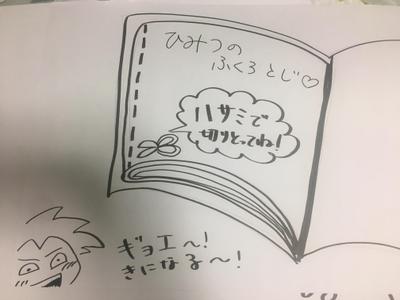 ひみつの
ふくろとじ♡
ハサミで
切りとってね!
ギョエ〜!
きになる〜!